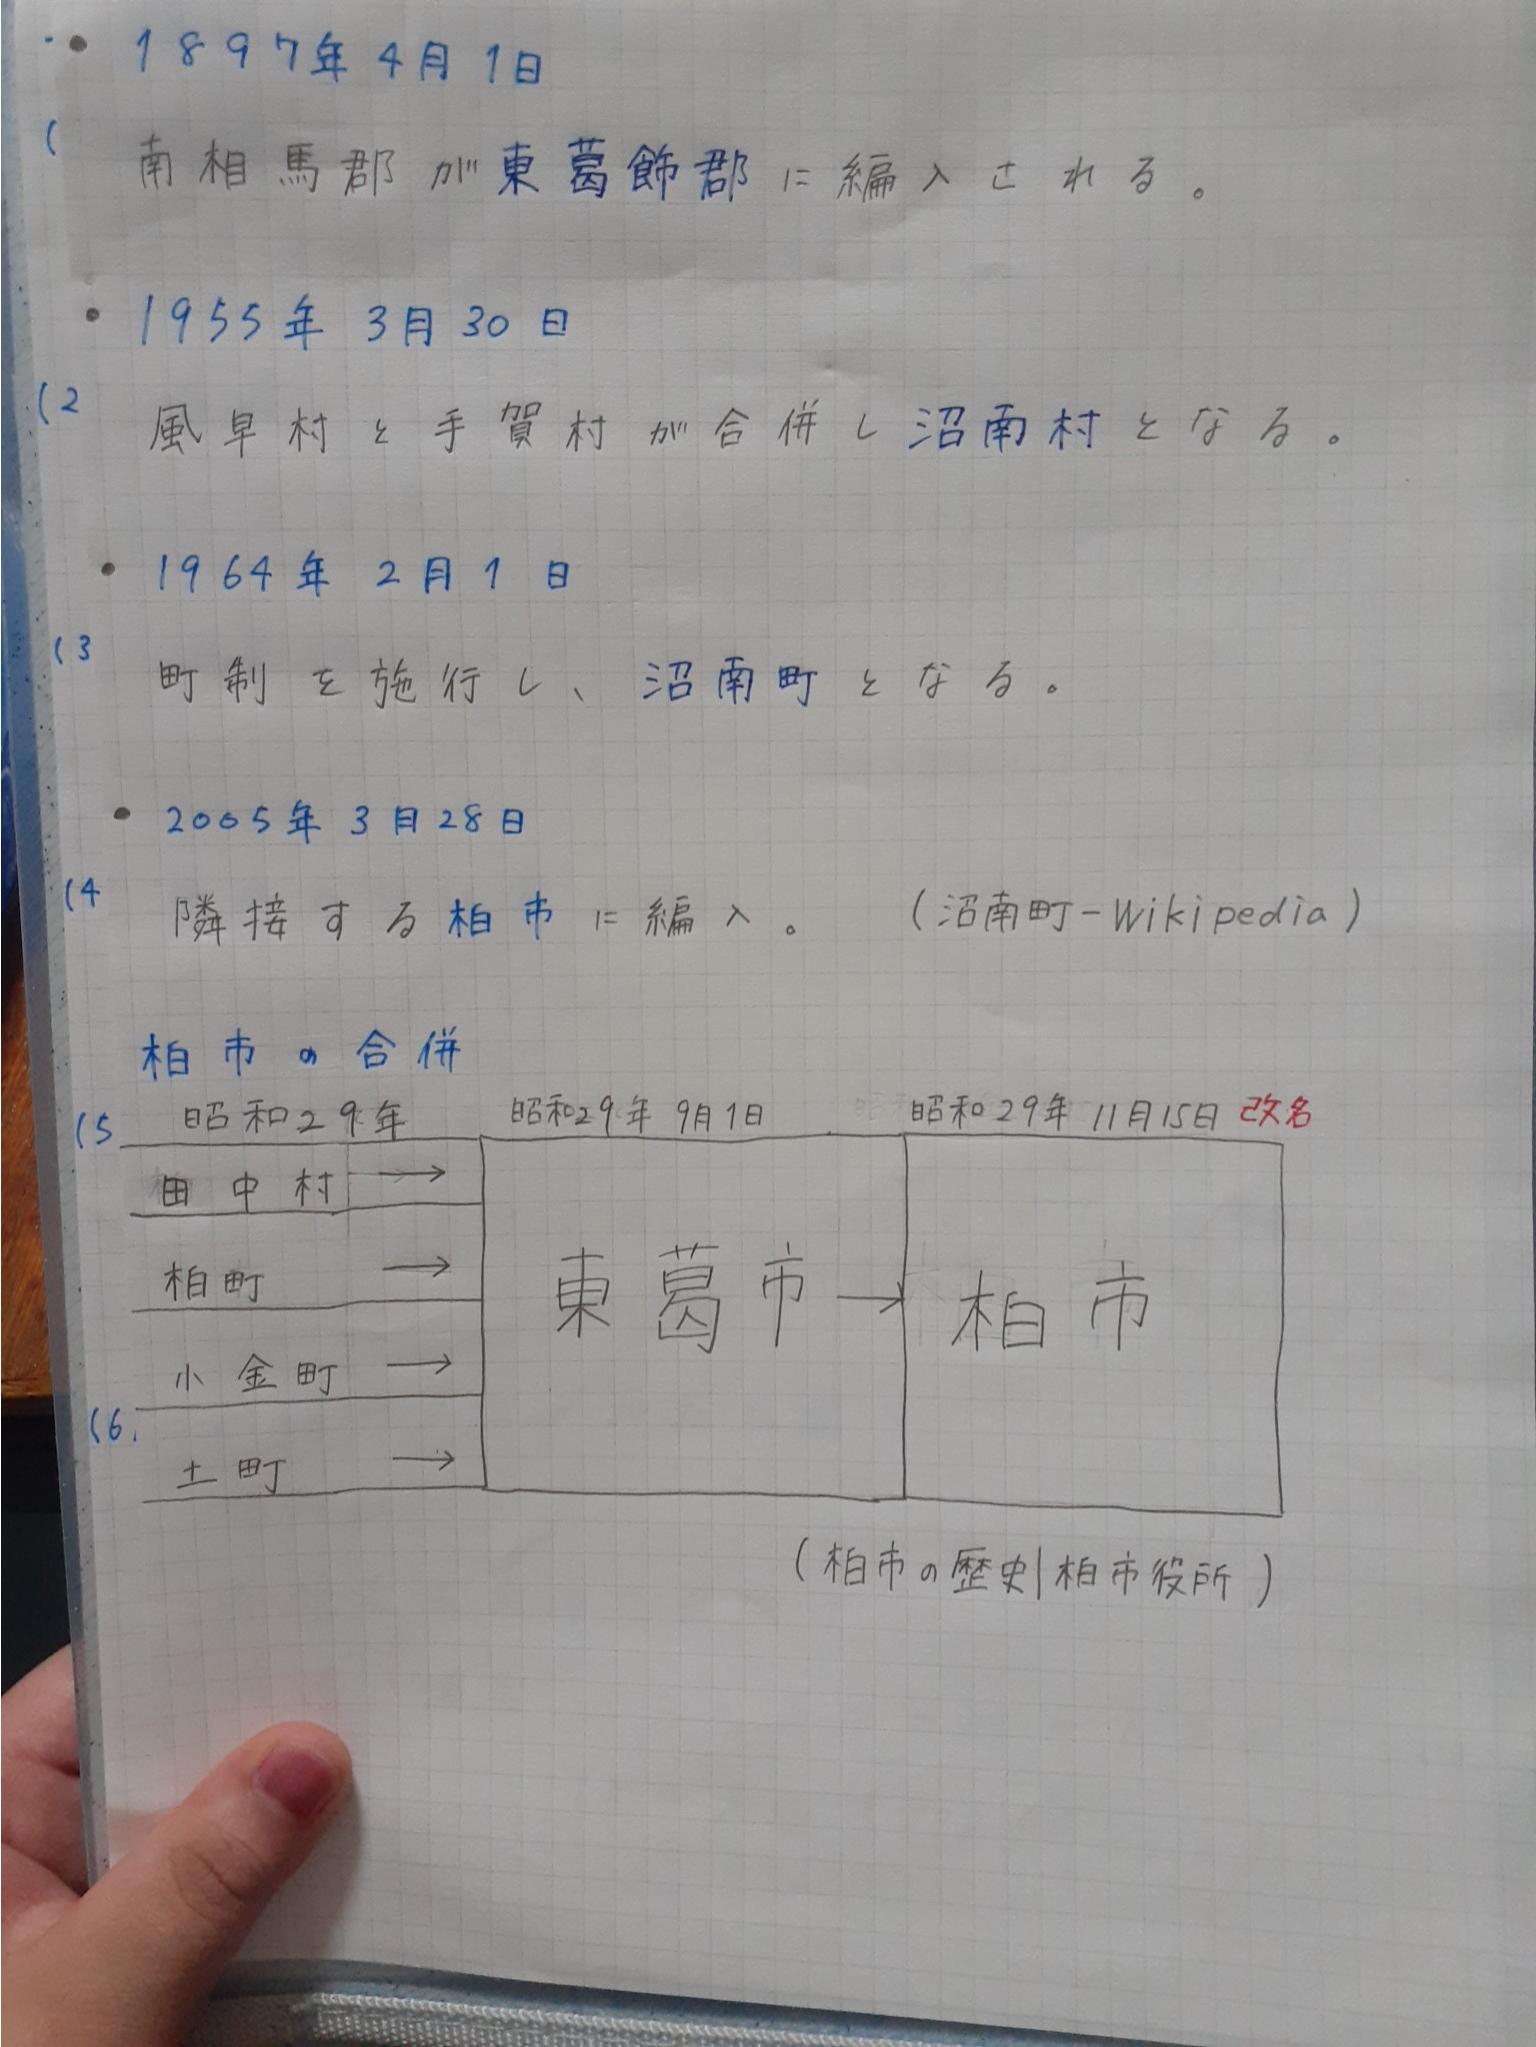 ・1897年4月1日
(
南相馬郡が東葛飾郡に編入される。
・1955年3月30日
(2
風早村と手賀村が合併し沼南村となる。
・1964年2月1日
(3
町制を施行し、沼南町となる。
・2005年3月28日
(4
隣接する柏市に編入。 (沼南町-Wikipedia)
柏市の合併
(5
昭和29年 昭和29年9月1日 昭和29年11月15日 改名
田中村 →
柏町 →
小金町 →
(6.
土町 →
東葛市 → 柏市
(柏市の歴史|柏市役所)